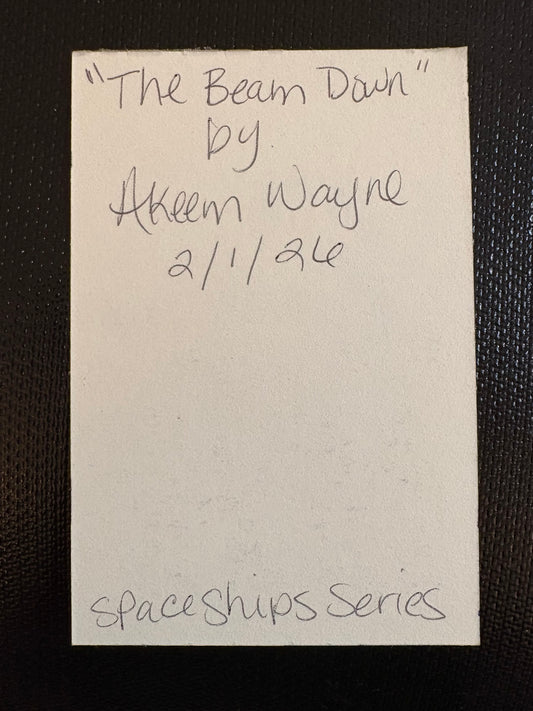 "The Beam Down"
by
Akeem Wayne
2/1/26
Spaceships Series